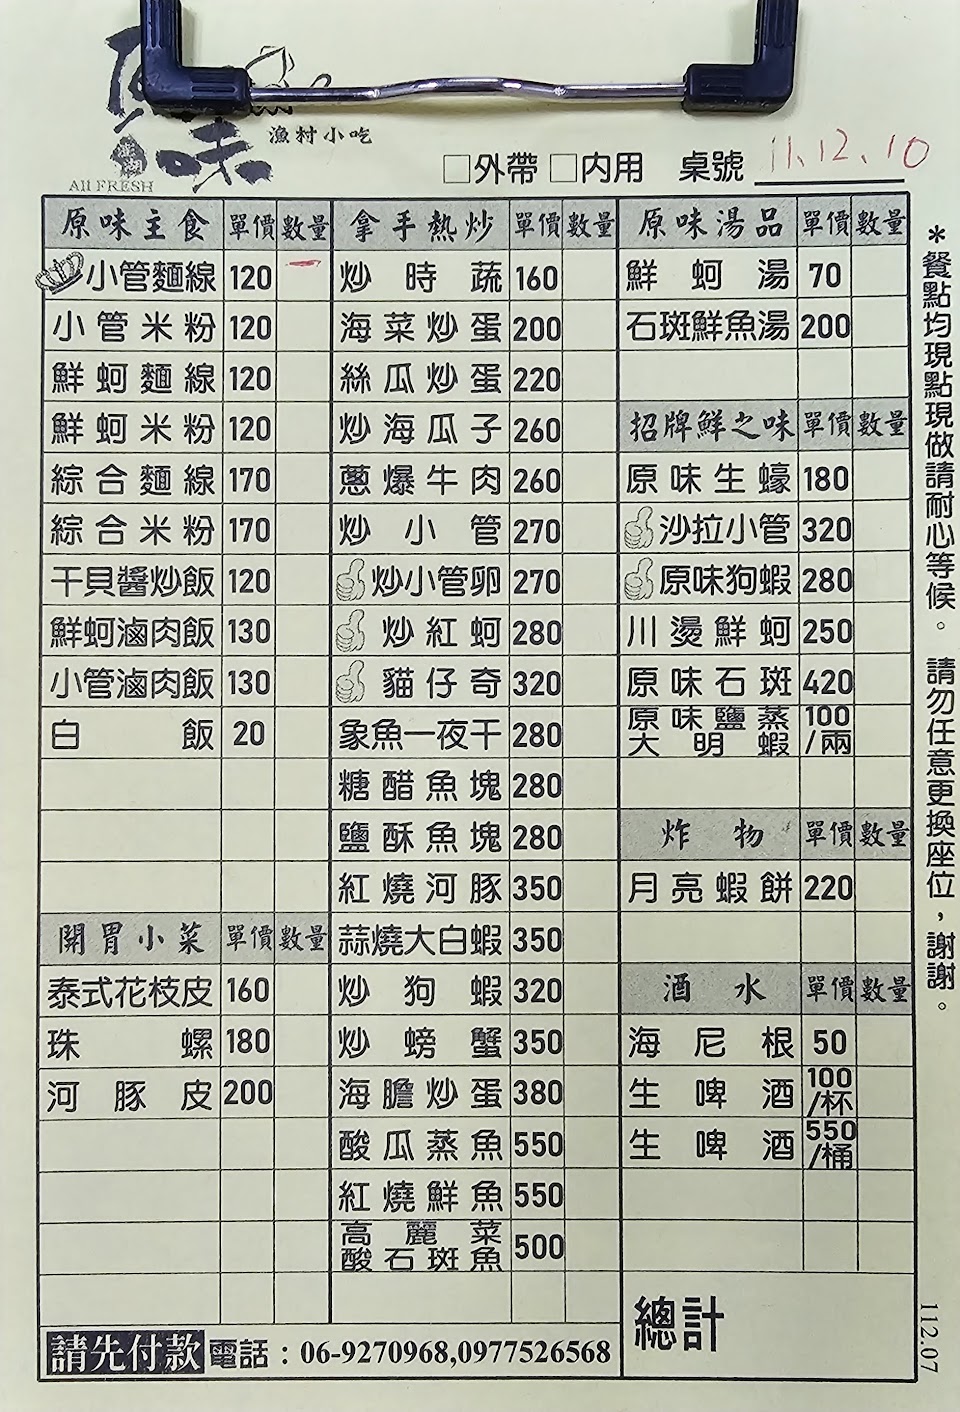 原味
澎湖
漁村小吃
All FRESH
□外帶 □內用 桌號 11.12.10
原味主食 單價 數量
小管麵線 120
小管米粉 120
鮮蚵麵線 120
鮮蚵米粉 120
綜合麵線 170
綜合米粉 170
干貝醬炒飯 120
鮮蚵滷肉飯 130
小管滷肉飯 130
白飯 20
開胃小菜 單價 數量
泰式花枝皮 160
珠螺 180
河豚皮 200
拿手熱炒 單價 數量
炒時蔬 160
海菜炒蛋 200
絲瓜炒蛋 220
炒海瓜子 260
蔥爆牛肉 260
炒小管 270
炒小管卵 270
炒紅蚵 280
貓仔奇 320
象魚一夜干 280
糖醋魚塊 280
鹽酥魚塊 280
紅燒河豚 350
蒜燒大白蝦 350
炒狗蝦 320
炒螃蟹 350
海膽炒蛋 380
酸瓜蒸魚 550
紅燒鮮魚 550
高麗菜
酸石斑魚 500
原味湯品 單價 數量
鮮蚵湯 70
石斑鮮魚湯 200
招牌鮮之味 單價 數量
原味生蠔 180
沙拉小管 320
原味狗蝦 280
川燙鮮蚵 250
原味石斑 420
原味鹽蒸 100
大明蝦 /兩
炸物 單價 數量
月亮蝦餅 220
酒水 單價 數量
海尼根 50
生啤酒 100/杯
生啤酒 550/桶
總計
請先付款 電話：06-9270968,0977526568
＊餐點均現點現做請耐心等候。請勿任意更換座位，謝謝。
112.07